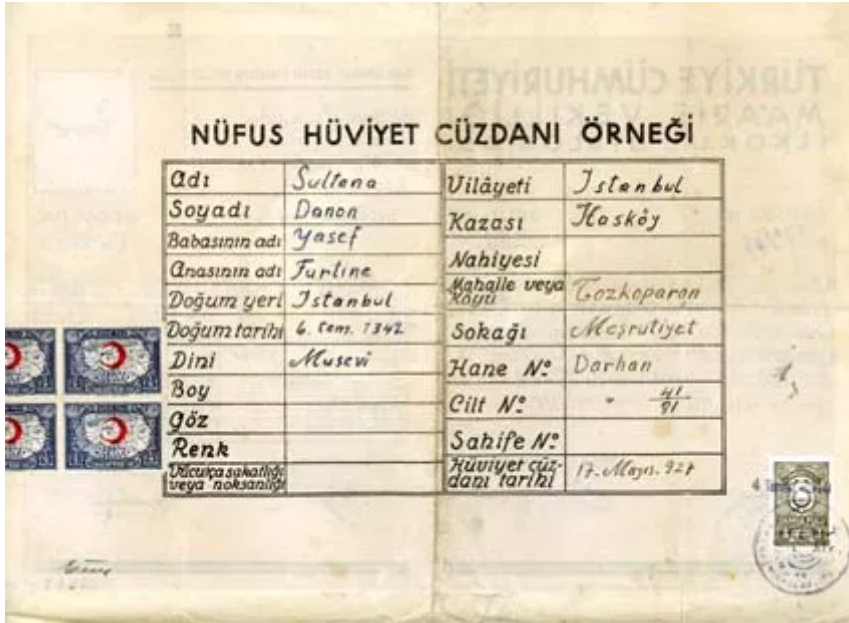 NÜFUS HÜVİYET CÜZDANI ÖRNEĞİ
Adı Sultana
Soyadı Danon
Babasının adı Yasef
Anasının adı Furtine
Doğum yeri Istanbul
Doğum tarihi 6. Tem. 1342
Dini Musevi
Boy
Göz
Renk
Vücutça sakatlığı
veya noksanlığı
Vilâyeti Istanbul
Kazası Hasköy
Nahiyesi
Mahalle veya
Köyü Tozkoparan
Sokağı Meşrutiyet
Hane № Darhan
Cilt № " 41/81
Sahife №
Hüviyet cüz-
danı tarihi 17. Mayıs. 927
TÜRKİYE CÜMHURİYETİ
MAARİF VEKİLLİĞİ